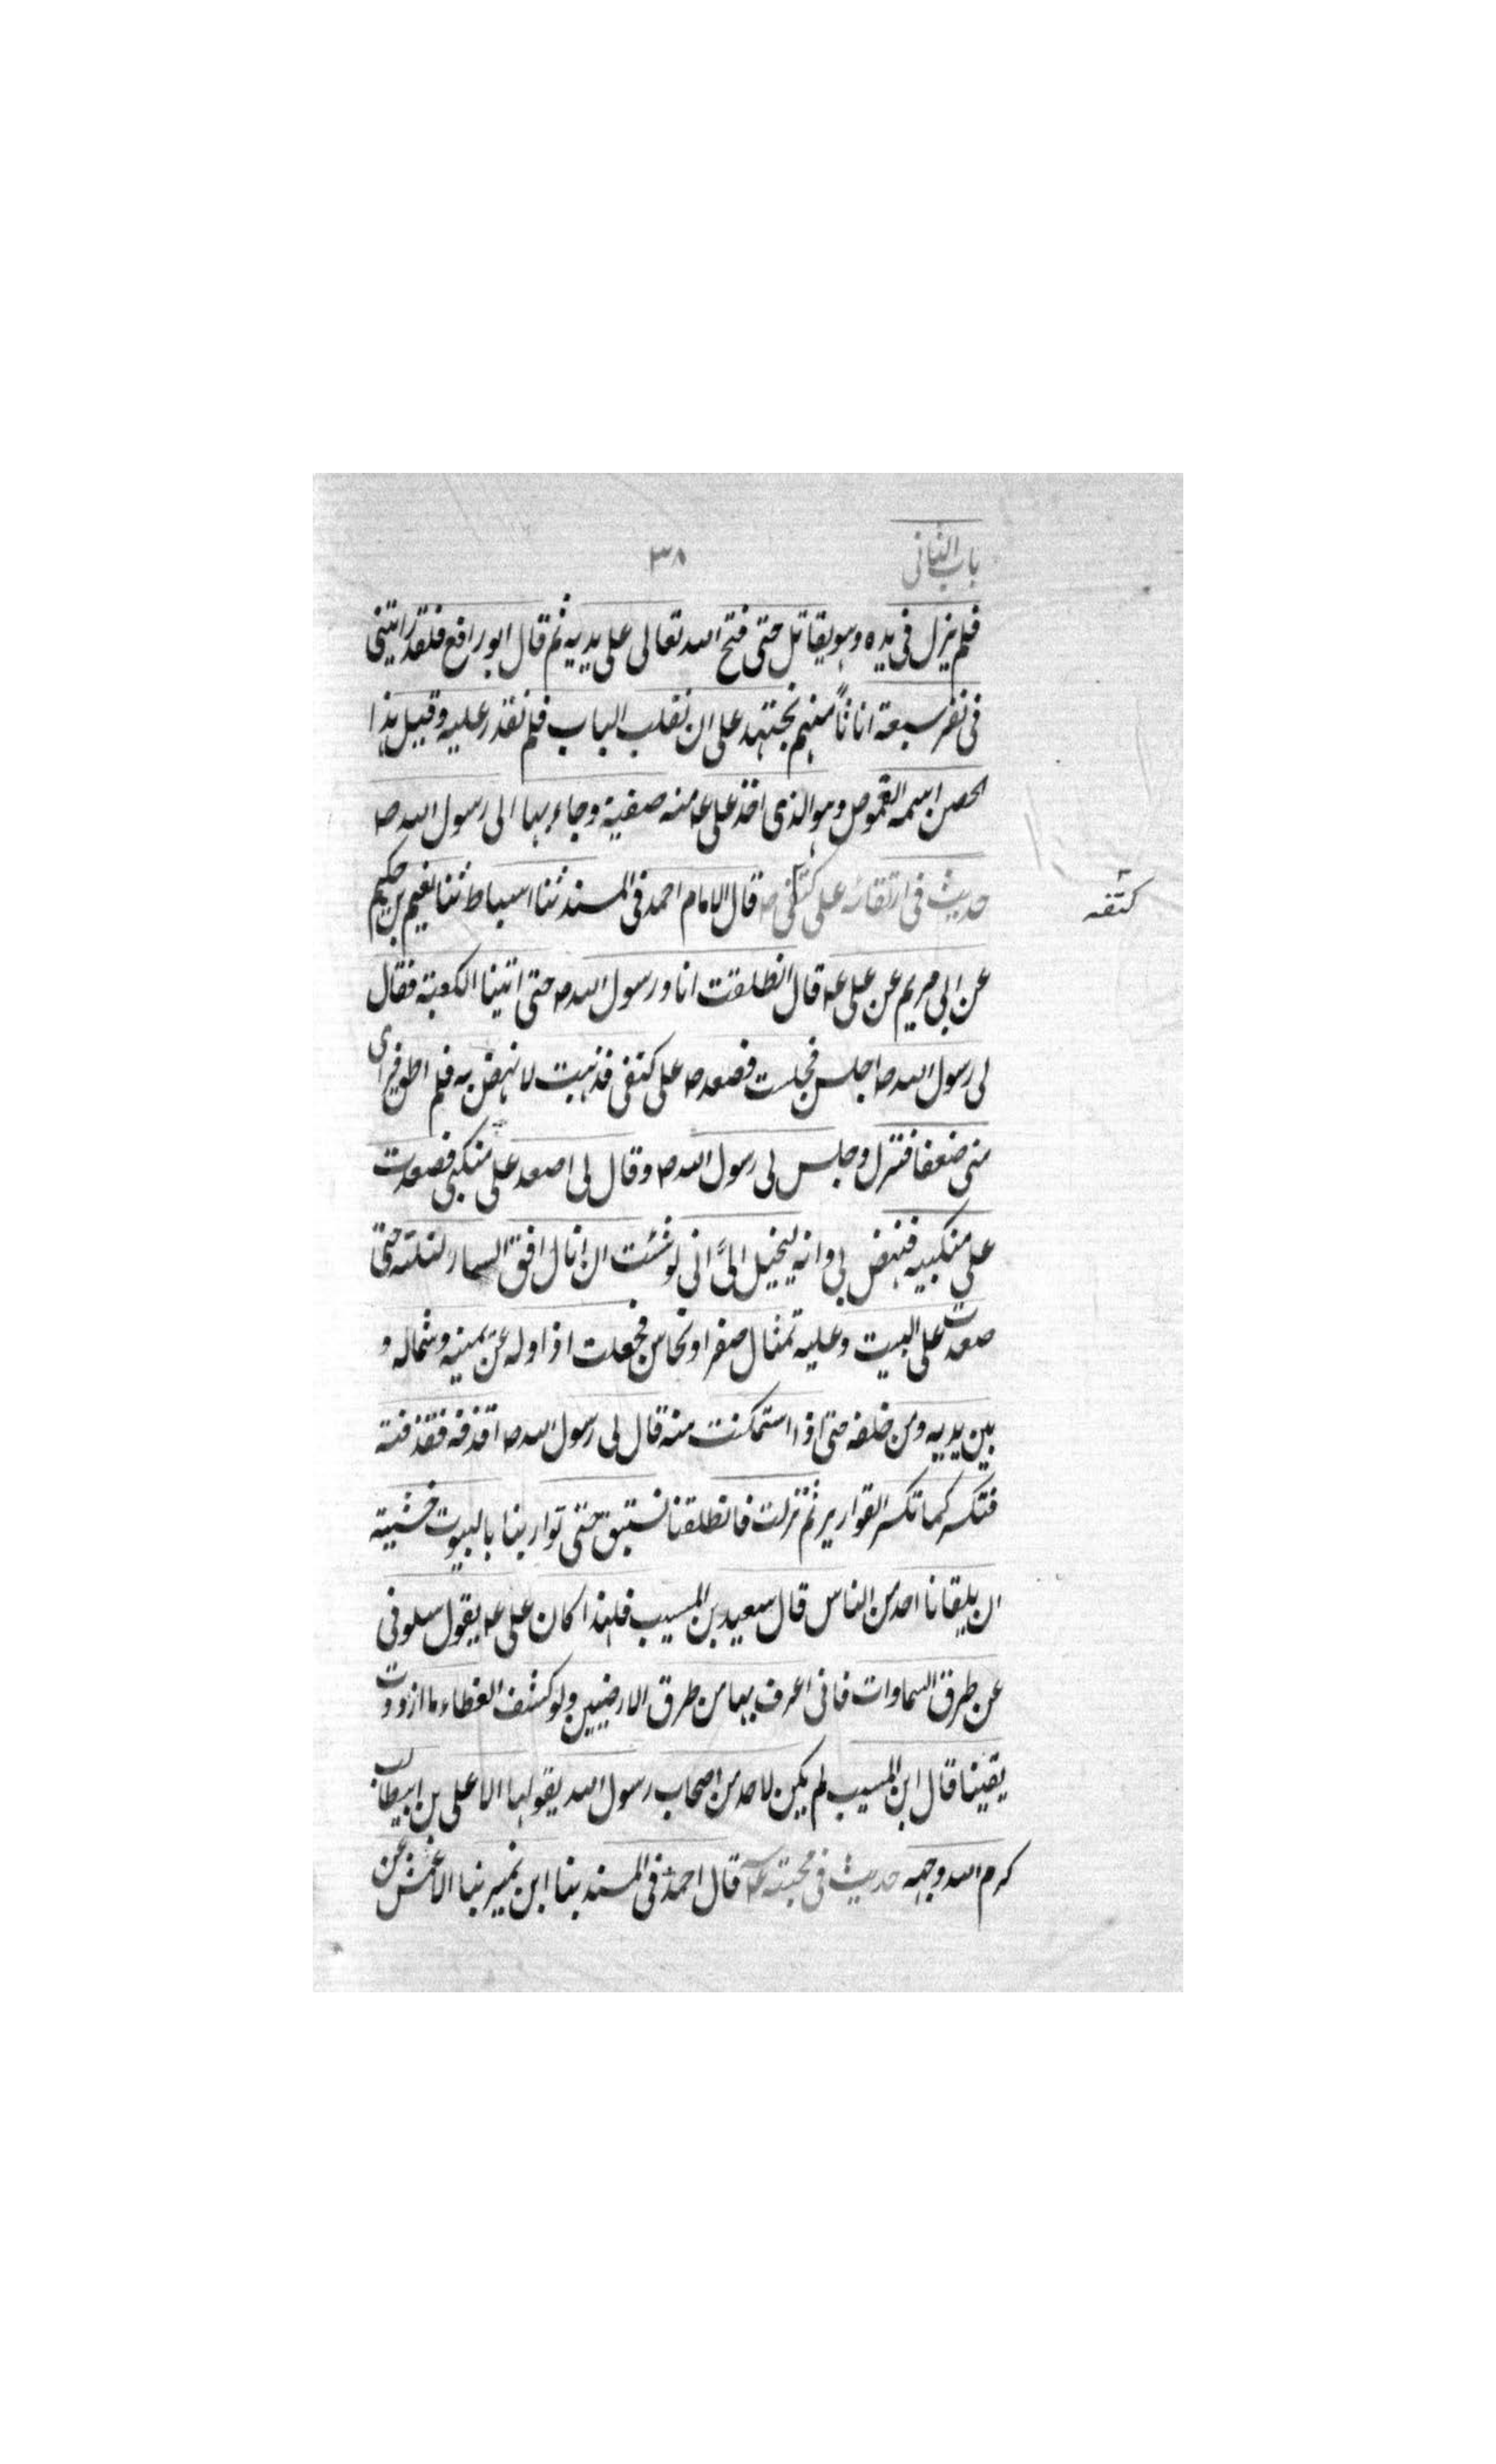 باب الثانی
٣٨
فلم يزل فى يده وهو يقاتل حتى فتح الله تعالى على يديه ثم قال ابو رافع فلقد رايتنى
فى نفر سبعة انا ثامنهم نجتهد على ان نقلب الباب فلم نقدر عليه وقيل هذا
الحصن اسمه القموص وهو الذى اخذ على ع منه صفية وجاء بها الى رسول الله ص
حديث فى ارتقائه على كتفى ص قال الامام احمد فى المسند ثنا اسباط ثنا نعيم بن حكيم
كتفه
عن ابى مريم عن على ع قال انطلقت انا ورسول الله ص حتى اتينا الكعبة فقال
لى رسول الله ص اجلس فجلست فصعد ص على كتفى فذهبت لانهض به فلم اطق فراى
منى ضعفا فنزل وجلس لى رسول الله ص وقال لى اصعد على منكبى فصعدت
على منكبيه فنهض بى وانه ليخيل الىّ انى لو شئت ان انال افق السماء لنلته حتى
صعدت على البيت وعليه تمثال صفر او نحاس فجعلت ازاوله عن يمينه وشماله و
بين يديه ومن خلفه حتى اذا استمكنت منه قال لى رسول الله ص اقذفه فقذفته
فتكسر كما تكسر القوارير ثم نزلت فانطلقنا نستبق حتى توارينا بالبيوت خشية
ان يلقانا احد من الناس قال سعيد بن المسيب فلهذا كان على ع يقول سلونى
عن طرق السماوات فانى اعرف بها من طرق الارضيين ولو كشف الغطاء ما ازددت
يقينا قال ابن المسيب لم يكن لاحد من اصحاب رسول الله يقولها الا على بن ابيطالب
كرم الله وجهه حديث فى محبته ع قال احمد فى المسند بنا ابن نمير بنا الاعمش عن